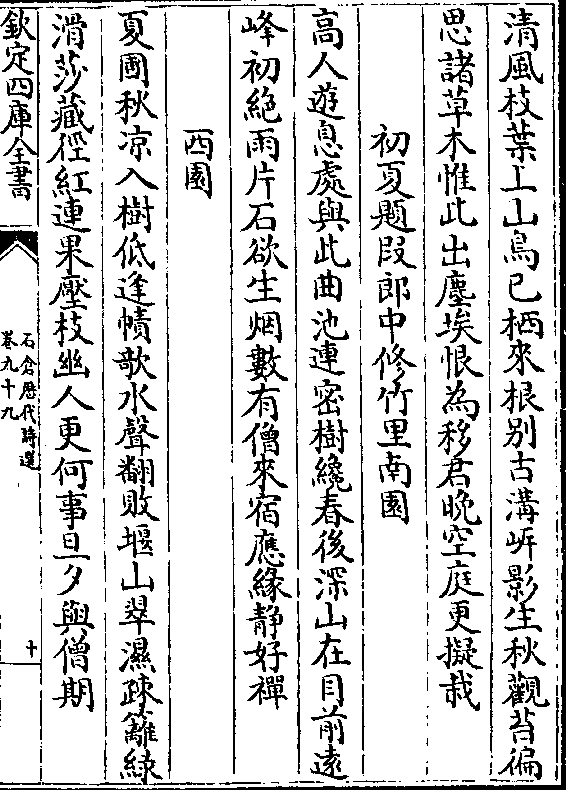 清風枝葉上山鳥已栖來根别古溝岍影生秋觀苔徧
思諸草木惟此出塵埃恨為移君晚空庭更擬栽
初夏題叚郎中修竹里南園
高人遊息處與此曲池連密樹纔春後深山在目前遠
峰初絶雨片石欲生烟數有僧來宿應緣静好禪
西園
夏圃秋凉入樹低逢幘欹水聲翻敗堰山翠濕疎籬綠
滑莎藏徑紅連果壓枝幽人更何事旦夕與僧期
欽定四庫全書
石倉歴代詩選
卷九十九
十